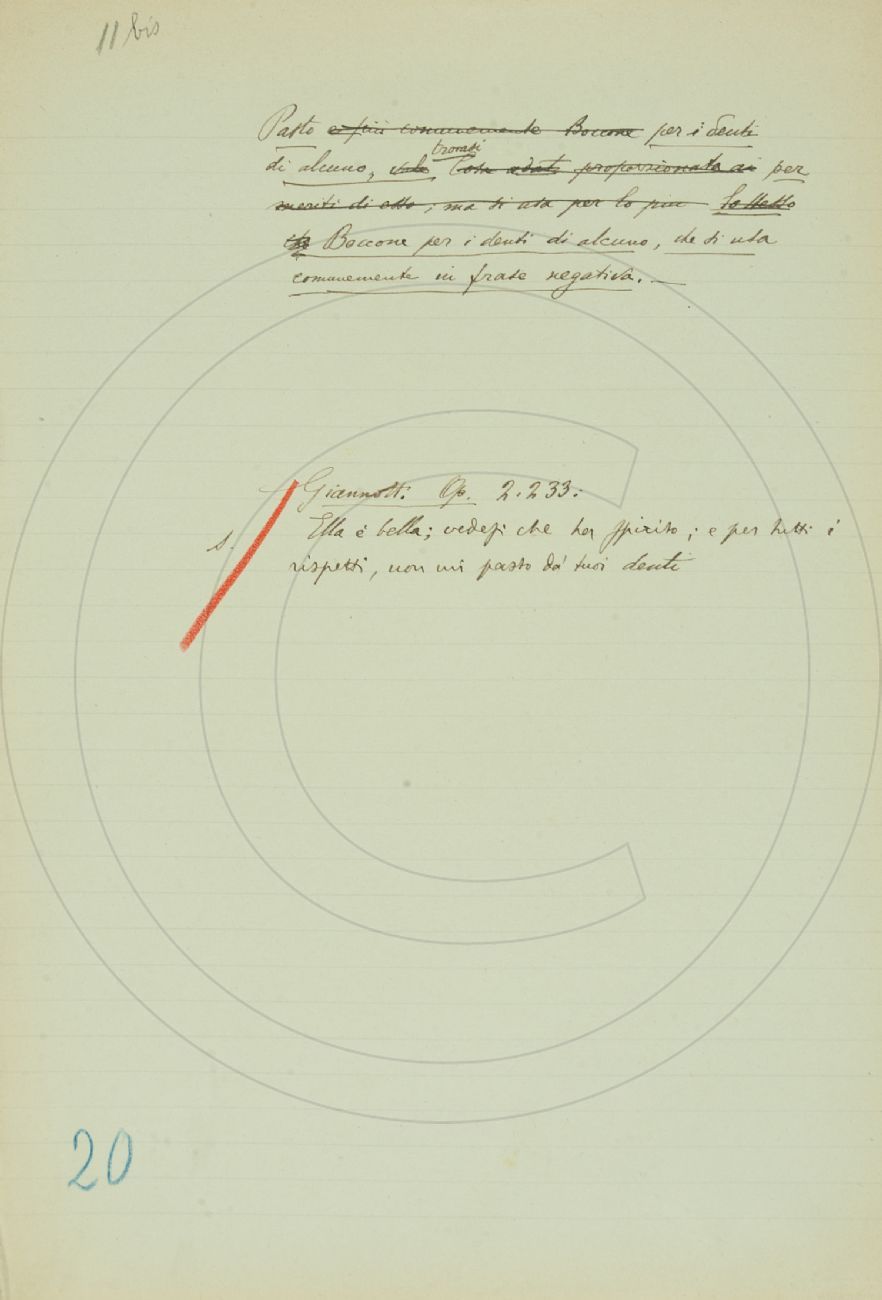 11 bis
Pasto e più comunemente Boccone per i denti
trovasi
di alcuno, vale Cosa adat proporzionata ai per
meriti di esso; ma si usa per lo più Lo stesso
che Boccone per i denti di alcuno, che si usa
comunemente in frase negativa. —
Giannott. Op. 2. 233:
s. Ella è bella; vedesi che ha spirito; e per tutti i
rispetti, non mi pasto da' tuoi denti
20